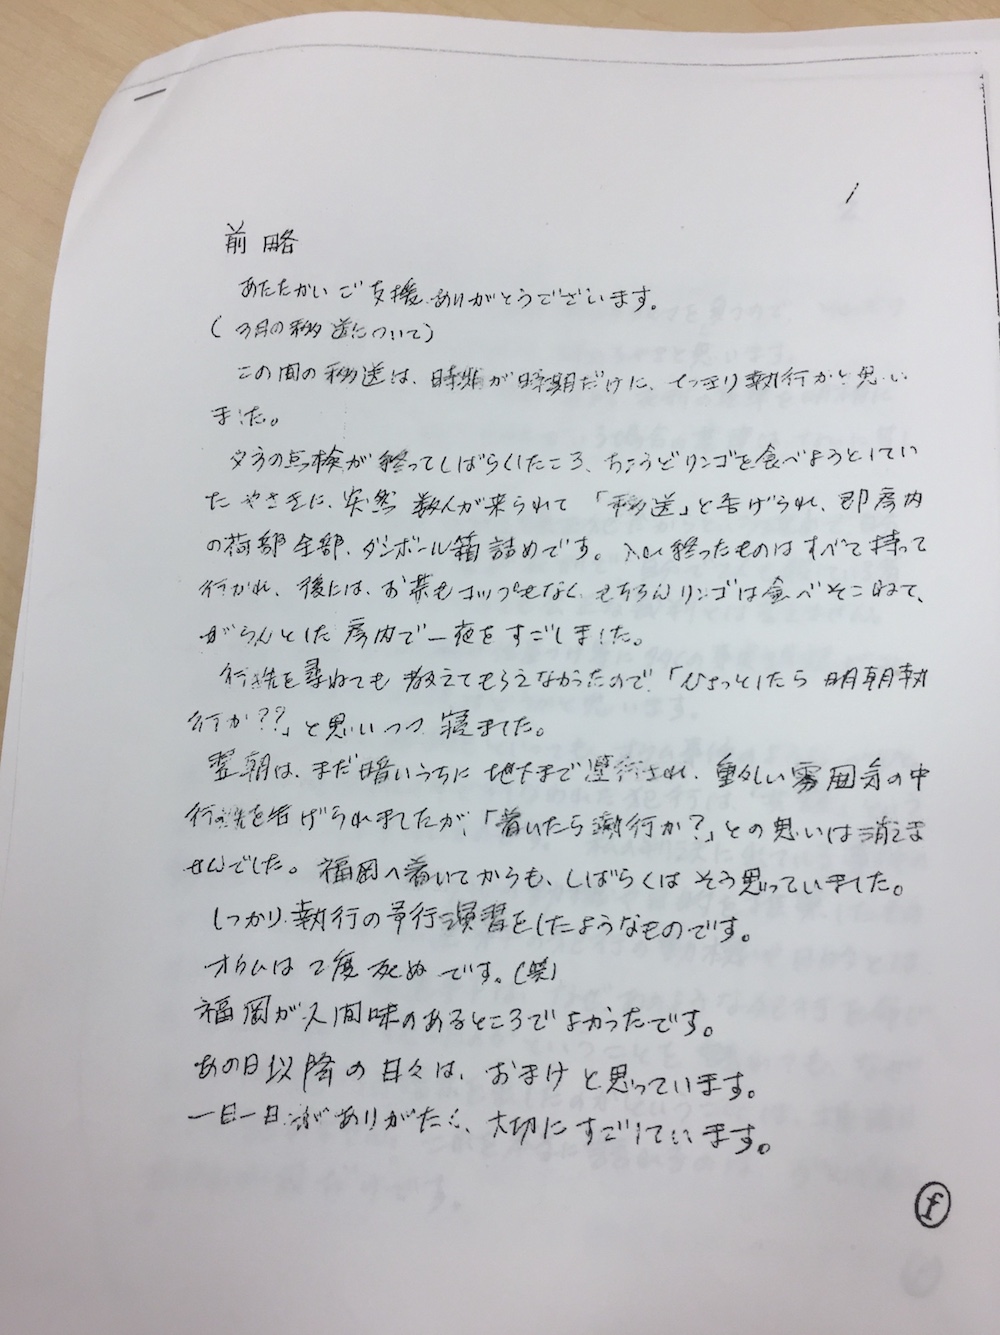 1
前略
あたたかいご支援ありがとうございます。
(3月の移送について)
この間の移送は、時期が時期だけに、てっきり執行かと思い
ました。
夕方の点検が終ってしばらくしたころ、ちょうどリンゴを食べようとしてい
たやさきに、突然数人が来られて「移送」と告げられ、即房内
の荷物全部、ダンボール箱詰めです。入れ終ったものはすべて持って
行かれ、後には、お茶もコップもなく、もちろんリンゴは食べそこねて、
がらんとした房内で一夜をすごしました。
行先を尋ねても教えてもらえなかったので、「ひょっとしたら明朝執
行か??」と思いつつ寝ました。
翌朝は、まだ暗いうちに地下まで連行され、重々しい雰囲気の中
行先を告げられましたが、「着いたら執行か?」との思いは消えま
せんでした。福岡へ着いてからも、しばらくはそう思っていました。
しっかり執行の予行演習をしたようなものです。
オウムは2度死ぬです。(笑)
福岡が人間味のあるところでよかったです。
あの日以降の日々は、おまけと思っています。
一日一日がありがたく、大切にすごしています。
f